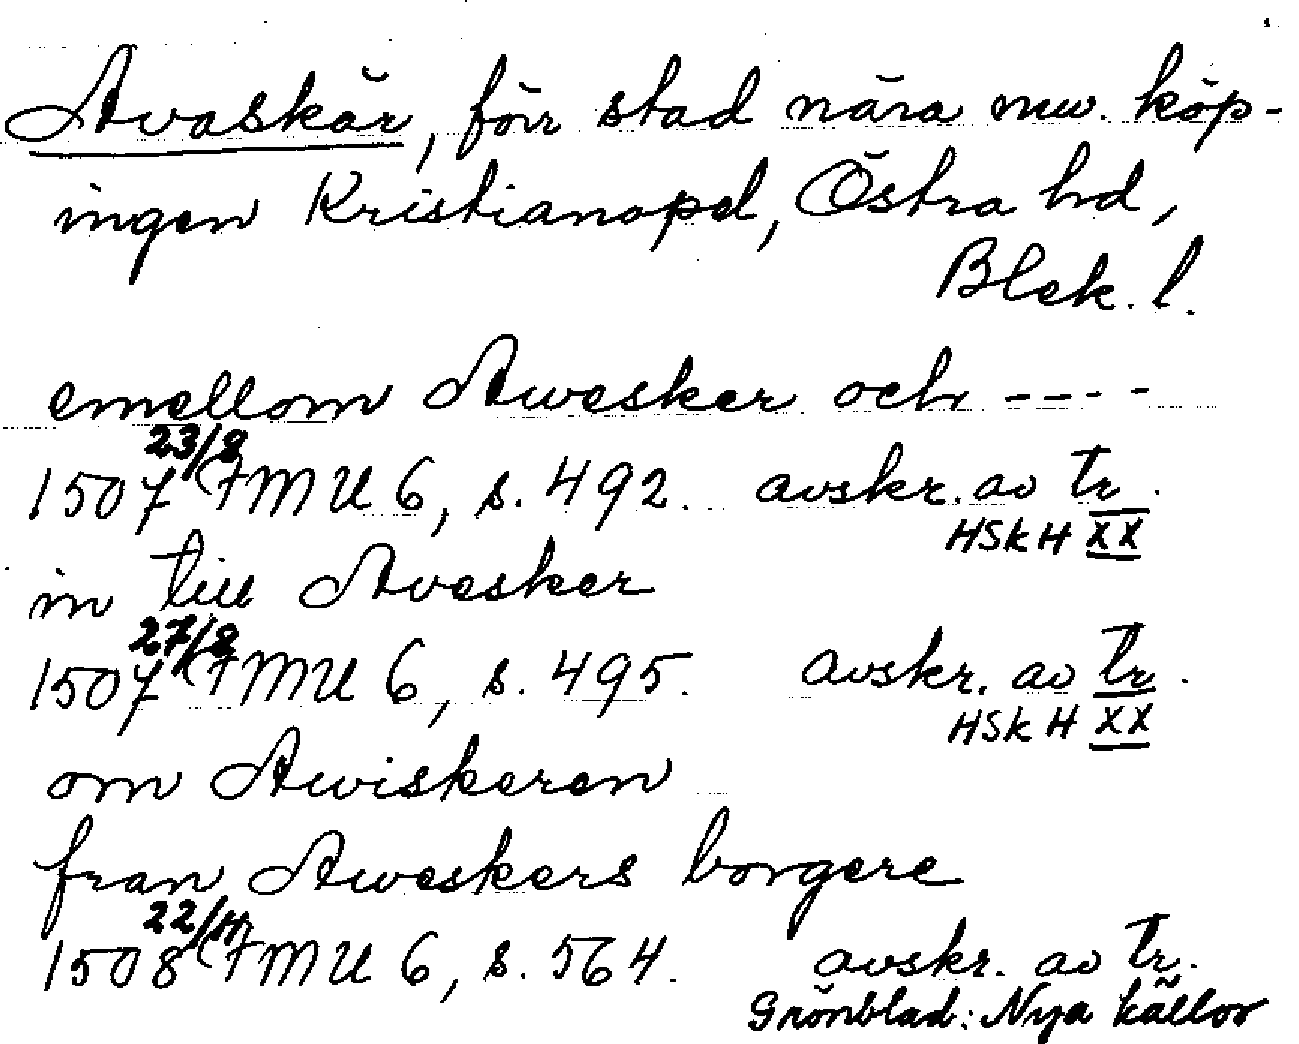 Avaskär, förr stad nära nuv. köp-
ingen Kristianopel, Östra hd,
Blek. l.
emellom Awesker och ----
23/8
1507 FMU 6, s. 492. avskr. av tr.
HSkH XX
in till Avesker
27/8
1507 FMU 6, s. 495. avskr. av tr.
HSkH XX
om Awiskeren
fran Aweskers borgere
22/4
1508 FMU 6, s. 564. avskr. av tr.
Grönblad: Nya källor